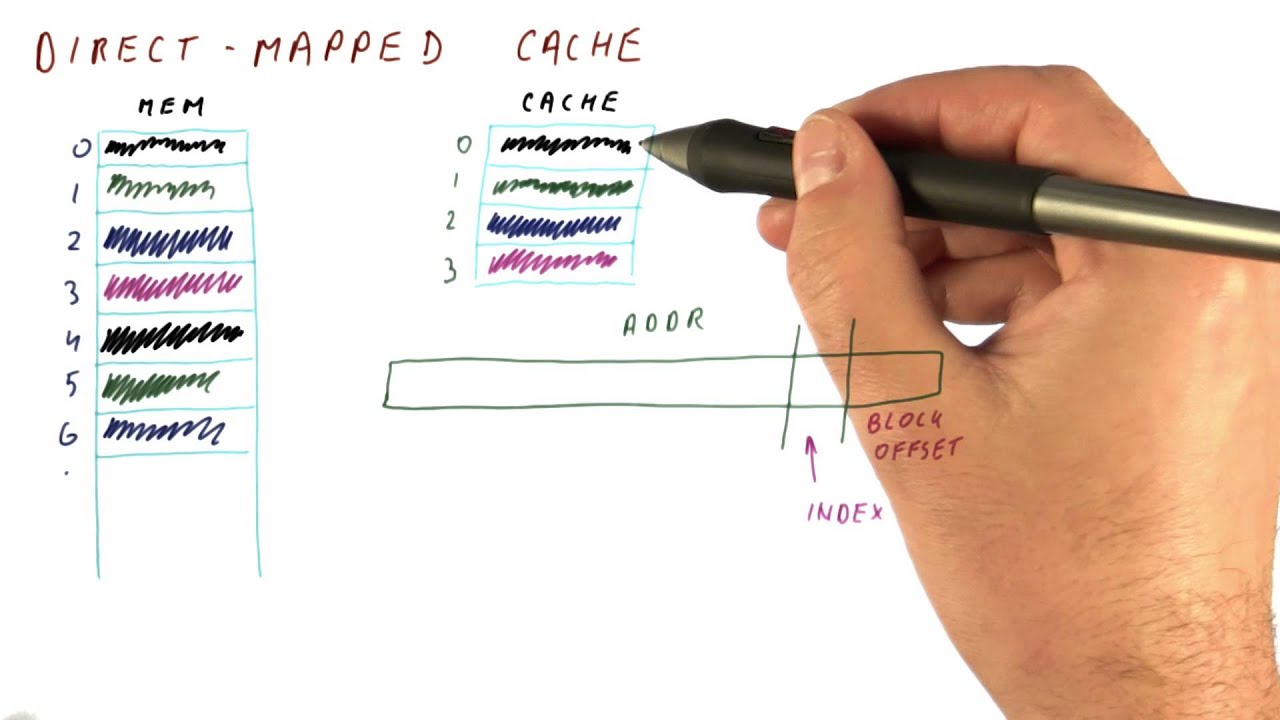 DIRECT-MAPPED CACHE
MEM
0
1
2
3
4
5
6
.
CACHE
0
1
2
3
ADDR
BLOCK
OFFSET
INDEX